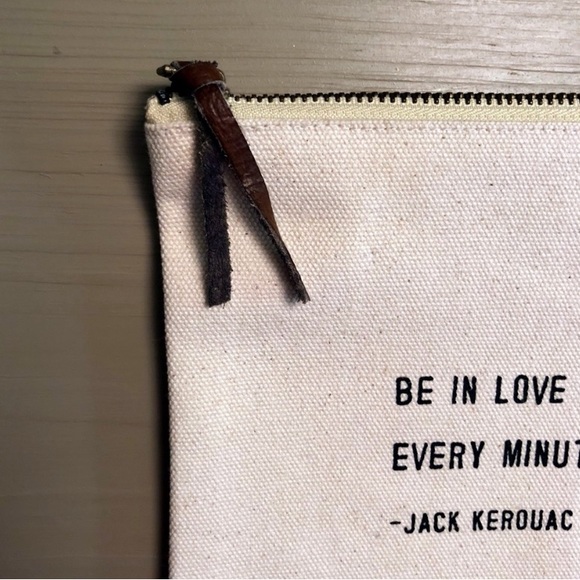 BE IN LOVE
EVERY MINUT
-JACK KEROUAC